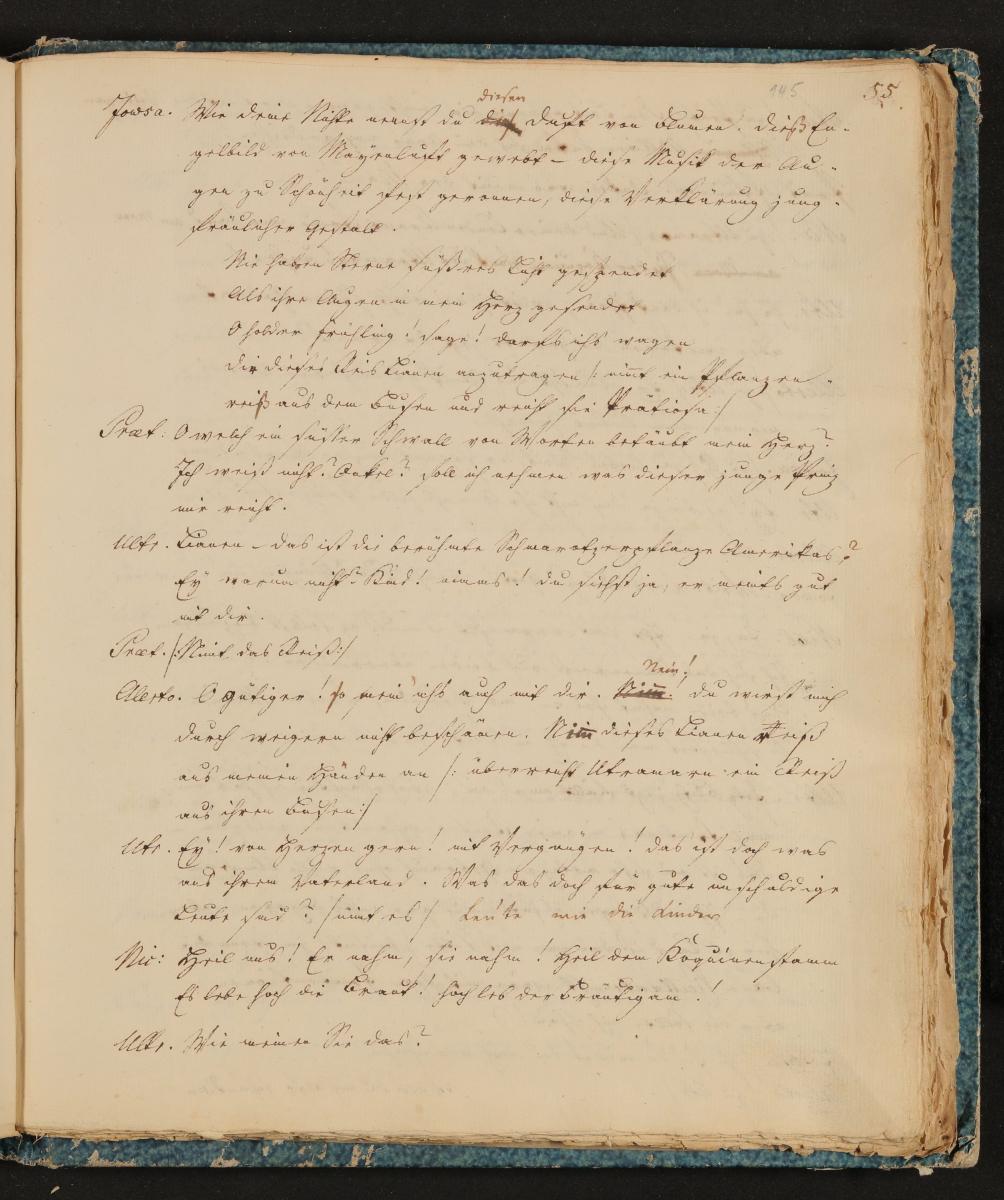 145 55.
diesen
Jowsa. Wie deine Nichte nennst du dieß Duft von Blumen. dieß En-
gelbild von Mayenluft gewebt – diese Musik der Au-
gen zu Schönheit fest geronnen, diese Verklärung jung-
fräulicher Gestalt.
Nie haben Sterne süßres Licht gespendet
Als ihre Augen in mein Herz gesendet
O holder Frühling! sage! darf ichs wagen
dir dieses Reis Lianen anzutragen /: nimt ein Pflanzen-
reiß aus dem Busen und reicht sie Prätiosa :/
Præt: O welch ein süsser Schwall von Worten betäubt mein Herz?
Ich weiß nicht? Onkel? soll ich nehmen was dieser junge Prinz
mir reicht.
Ultr. Lianen – das ist die berühmte Schmarotzerpflanze Amerikas?
Ey warum nicht Kind! nimms! du siehst ja, er meints gut
mit dir.
Præt. /: Nimt das Reiß :/
Nein!
Alesto. O gütiger! so mein ichs auch mit dir. Nim̅. du wirst mich
durch weigern nicht beschämen. Nim̅ dieses Lianen Reiß
aus meinen Händen an /: überreicht Utramarn ein Reiß
aus ihren Busen :/
Utr. Ey! von Herzen gern! mit Vergnügen! das ist doch was
aus ihrem Vaterland. Was das doch für gute unschuldige
Leute sind? /nimt es/ Leute wie die Kinder
Nic: Heil uns! Er nahm, sie nahm! Heil dem Koquinenstamm
Es lebe hoch die Braut! hoch leb der Bräutigam!
Ultr. Wie meinen Sie das?